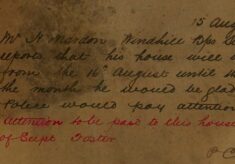 15 Aug
Mr H Mardon Windhill Bps
reports that his house will
from the 16th August until
the month he would be glad
Police would pay attention
Attention to be paid to this house
of Supt Foster
P.C